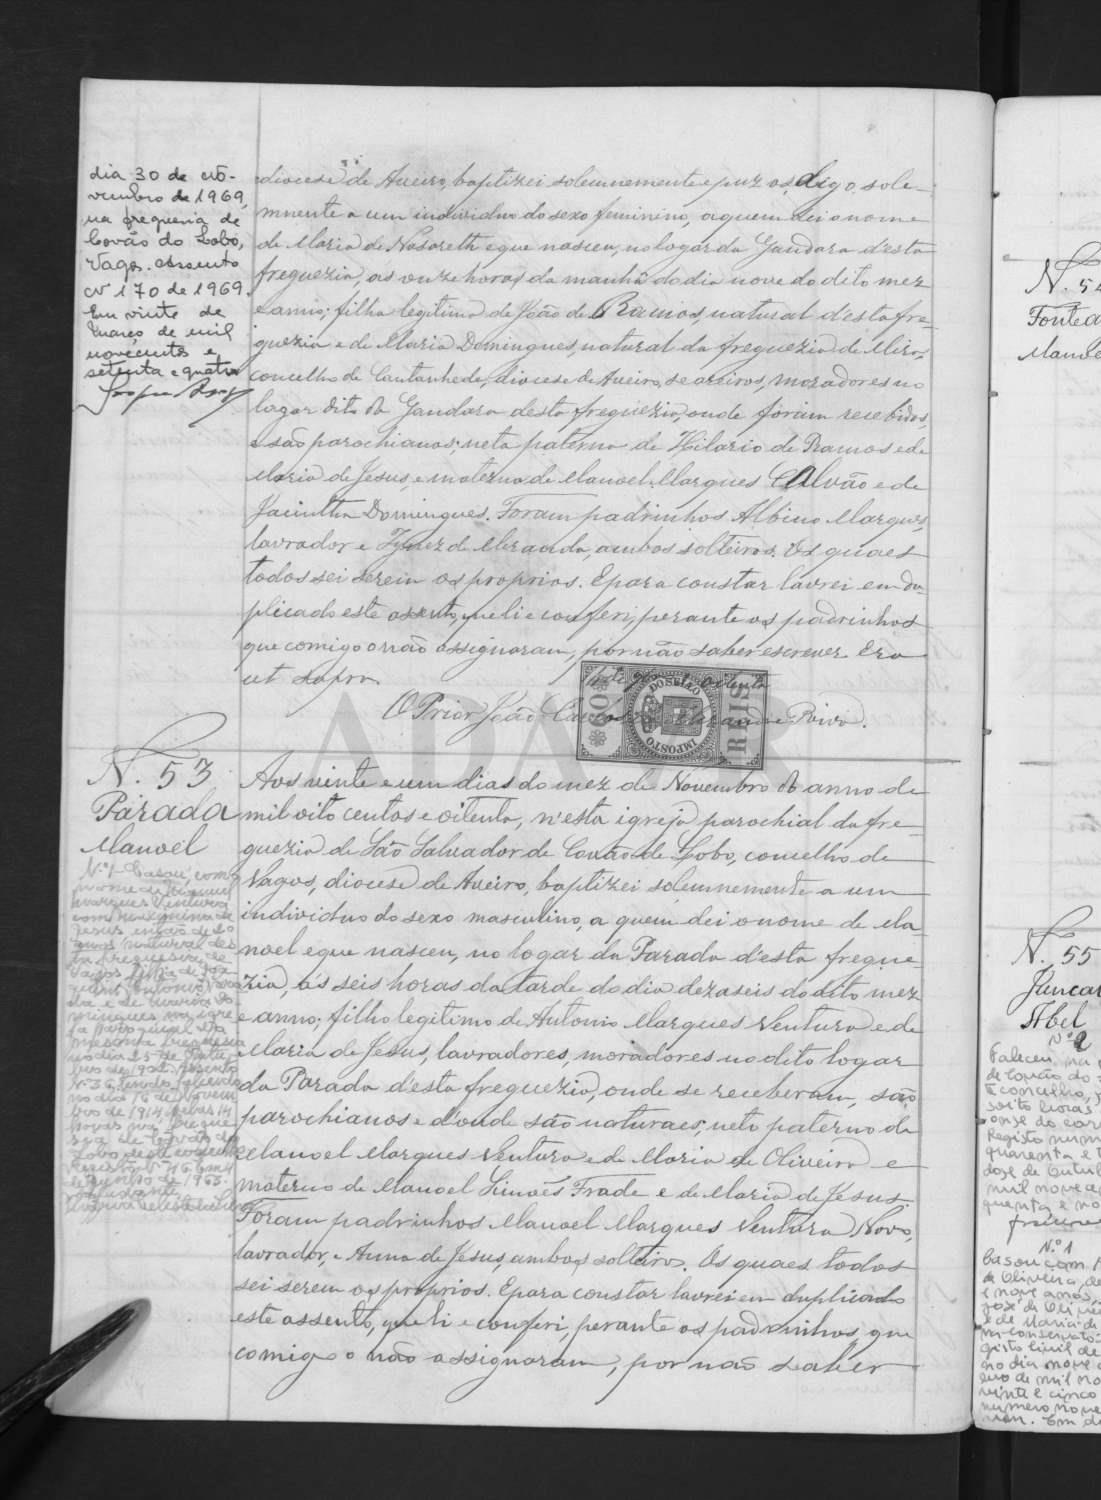 dia 30 de
vembro de 1969,
na freguesia de
Covão do Lobo,
Vagos. assento
nº 170 de 1969.
Em vinte de
Março de mil
novecentos e
setenta e quatro
diocese de Aveiro, baptizei solemnemente e puz os, digo, sole-
mnente a um individuo do sexo feminino, a quem dei o nome
de Maria de Nasareth e que nasceu, no logar da Gandara d'esta
freguezia, as onze horas da manhã do dia nove do dito mez
e anno; filha legitima de João de Ramos, natural d'esta fre-
guezia e de Maria Domingues, natural da freguezia de Mira,
concelho de Cantanhede, diocese de Aveiro, seareiros, moradores no
logar dito da Gandara desta freguezia, onde foram recebidos,
e são parochianos; neta paterna de Hilario de Ramos e de
Maria de Jesus, e materna de Manoel Marques Calvão e de
Jacintha Domingues. Foram padrinhos Albino Marques,
lavrador e Ignez de Miranda, ambos solteiros. Os quaes
todos sei serem os proprios. E para constar lavrei em du-
plicado este assento, que li e conferi, perante os padrinhos
que comigo o não assignaram, por não saber escrever. Era
ut supra.
O Prior João
60 REIS
IMPOSTO DO SELLO
ADAVR
N. 53
Parada
Manoel
Aos vinte e um dias do mez de Novembro do anno de
mil oito centos e oitenta, n'esta igreja parochial da fre-
guezia de São Salvador de Covão do Lobo, concelho de
Vagos, diocese de Aveiro, baptizei solemnemente a um
individuo do sexo masculino, a quem dei o nome de Ma-
noel e que nasceu, no logar da Parada d'esta fregue-
zia, ás seis horas da tarde do dia dezaseis do dito mez
e anno; filho legitimo de Antonio Marques Ventura e de
Maria de Jesus, lavradores, moradores no dito logar
da Parada d'esta freguezia, onde se receberam, são
parochianos e d'onde são naturaes; neto paterno de
Manoel Marques Ventura e de Maria de Oliveira e
materno de Manoel Simões Frade e de Maria de Jesus.
Foram padrinhos Manoel Marques Ventura Novo,
lavrador, e Anna de Jesus, ambos solteiros. Os quaes todos
sei serem os proprios. E para constar lavrei em duplicado
este assento, que li e conferi, perante os padrinhos, que
comigo o não assignaram, por não saber
Nº 1 Casou, com o
nome de Manuel
Marques Ventura
com
Jesus
natural des
ta freguesia de
Vagos, filha de
Antonio
e de Maria Do
mingues, na igre
ja paroquial da
mesma freguesia
no dia 25 de
de 1902. Assento
Nº 36, tendo falecido
no dia 16 de Novem
bro de 1914, pelas 14
horas na fregue
sia de Covão do
Lobo, deste concelho
de 1963.
N. 54
Fonte
Manoel
N. 55
Juncal
Abel
Nº 2
Faleceu na
de Covão do
concelho,
oito horas
onze do
Registo num
quarenta e
doze de
mil nove
quenta e no
Nº 1
Casou com
de Oliveira, de
e nove anos,
José de Olivei
e de Maria de
na conservató-
gisto Civil de
no dia nove
de mil no
vinte e cinco
numero nove
Em